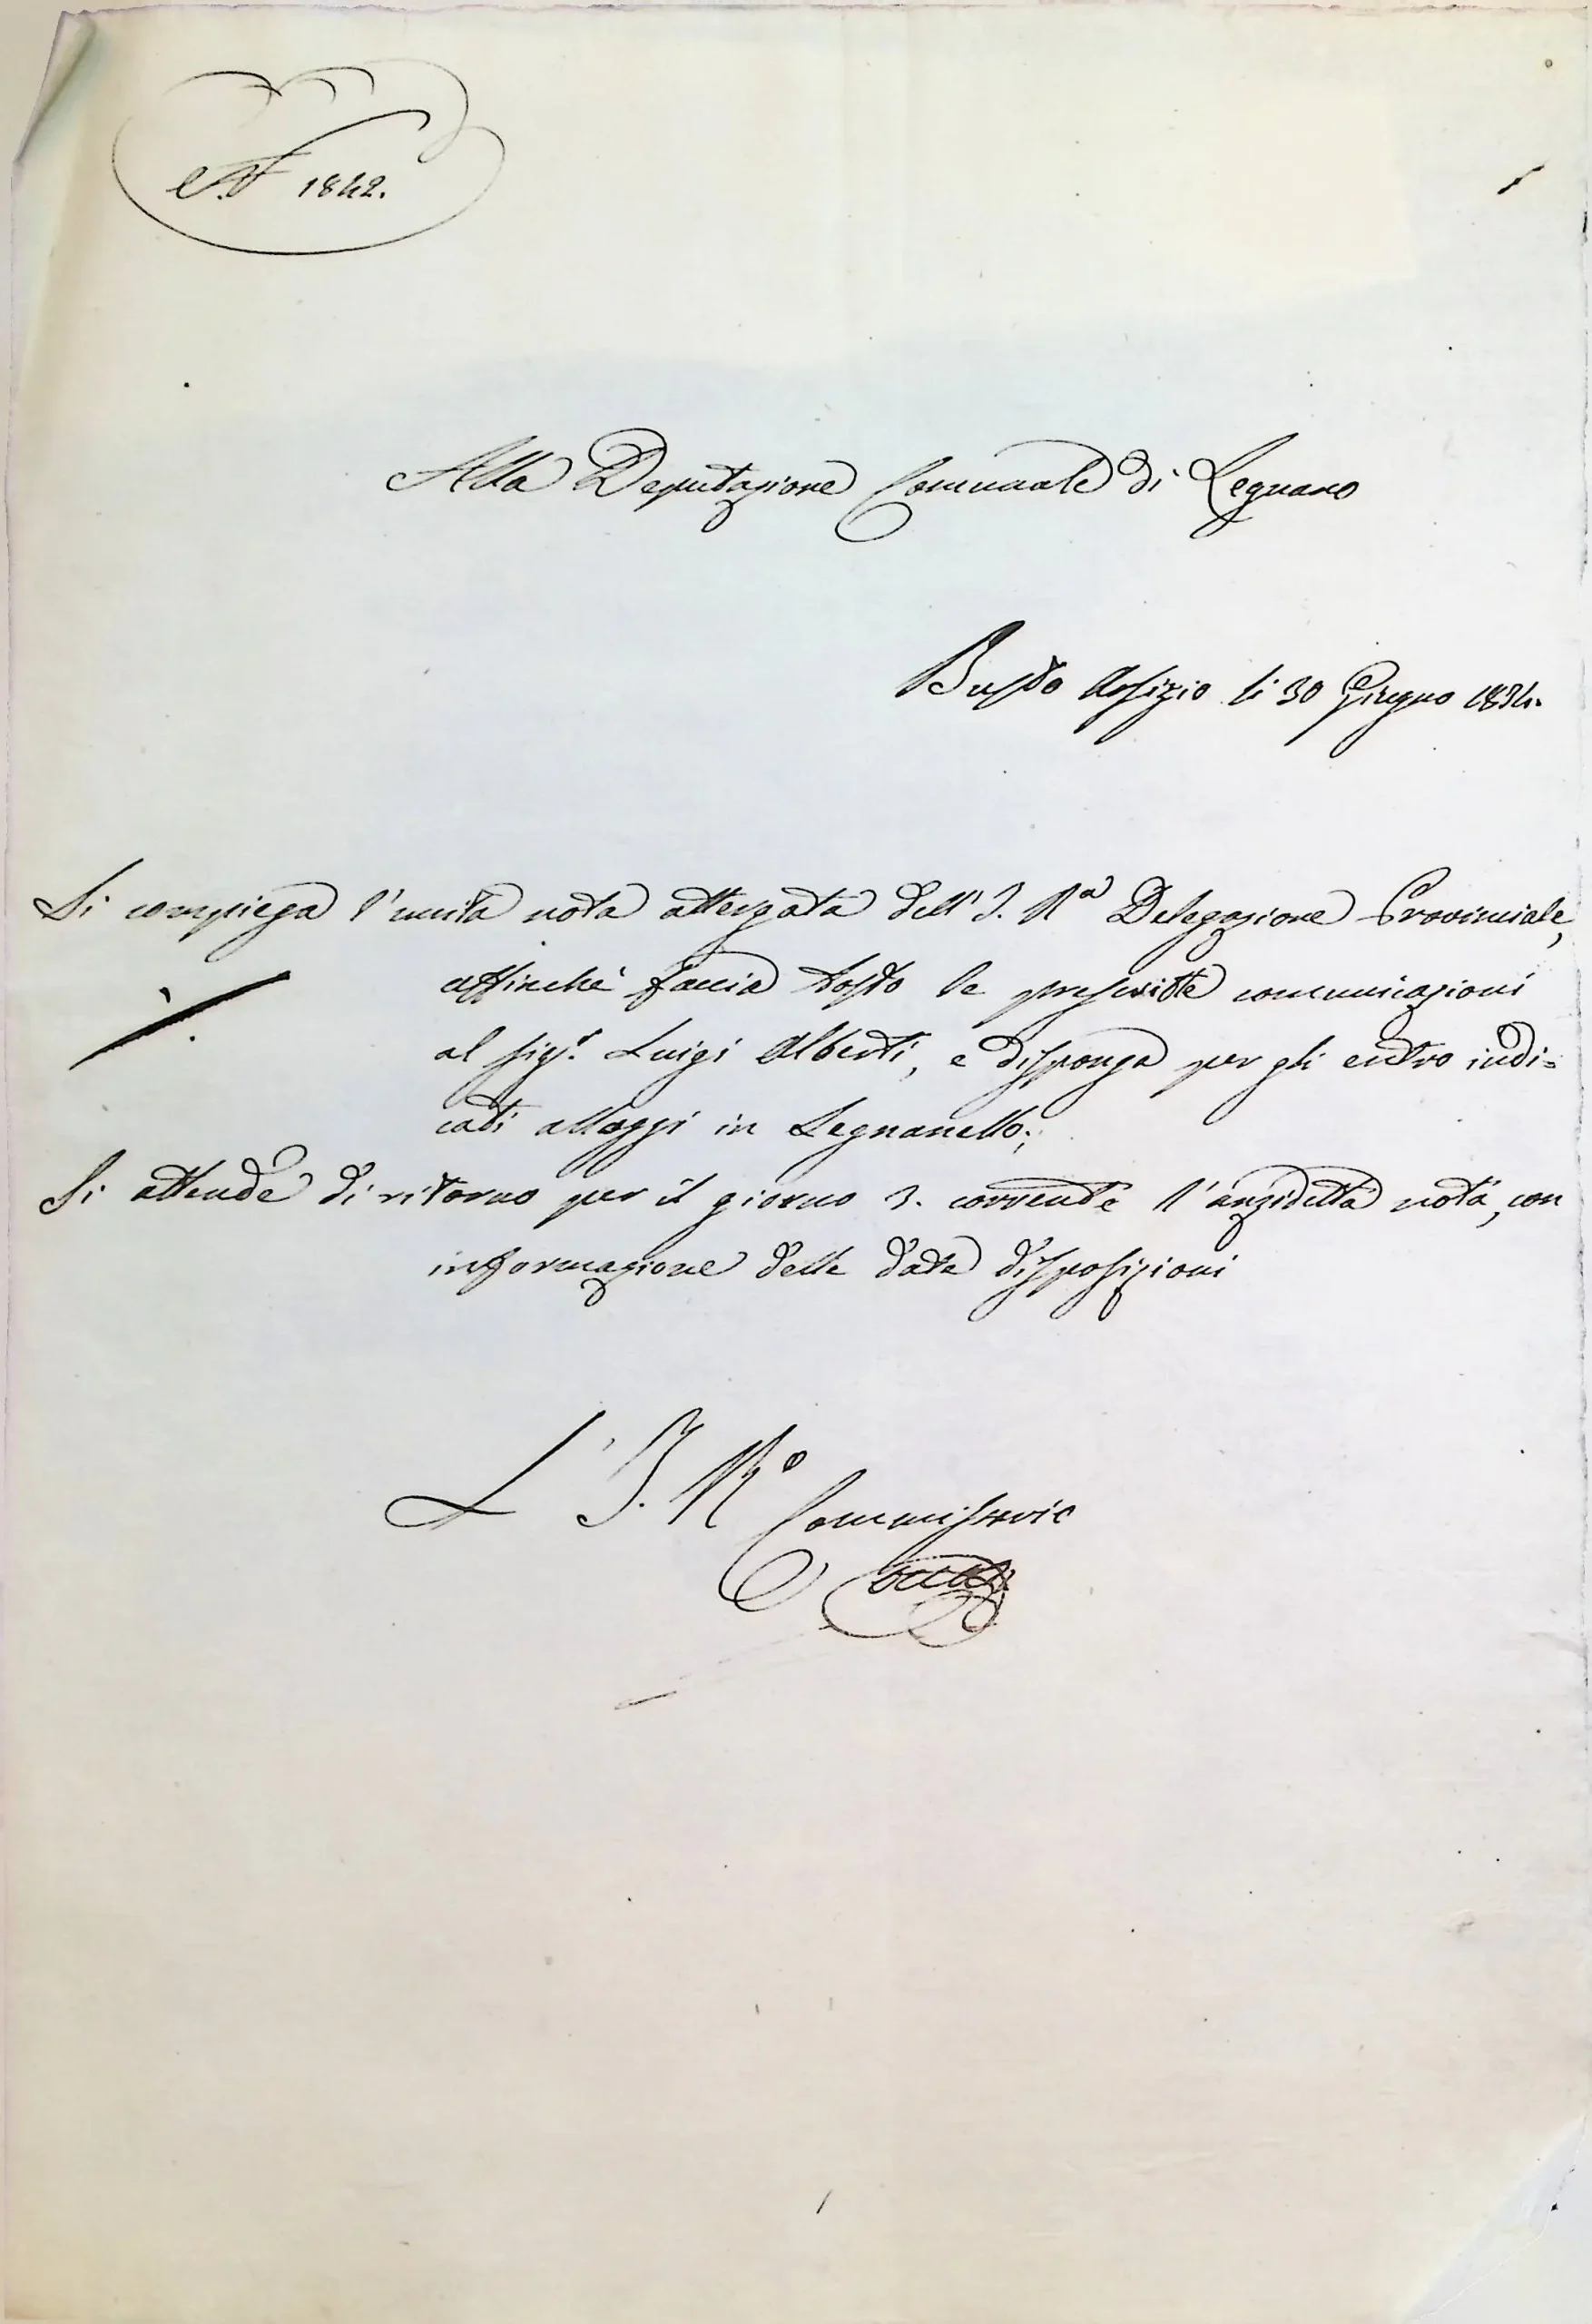 N 1842.
Alla Deputazione Comunale di Legnano
Busto Arsizio li 30 Giugno 1834.
Si compiega l'unita nota attergata dell'I. R.a Delegazione Provinciale,
affinchè faccia tosto le prescritte comunicazioni
al sig.r Luigi Alberti, e disponga per gli entro indi=
cati alloggi in Legnanello;
Si attende di ritorno per il giorno 3. corrente l'anzidetta nota, con
informazione delle date disposizioni
L'I. R.o Commissario